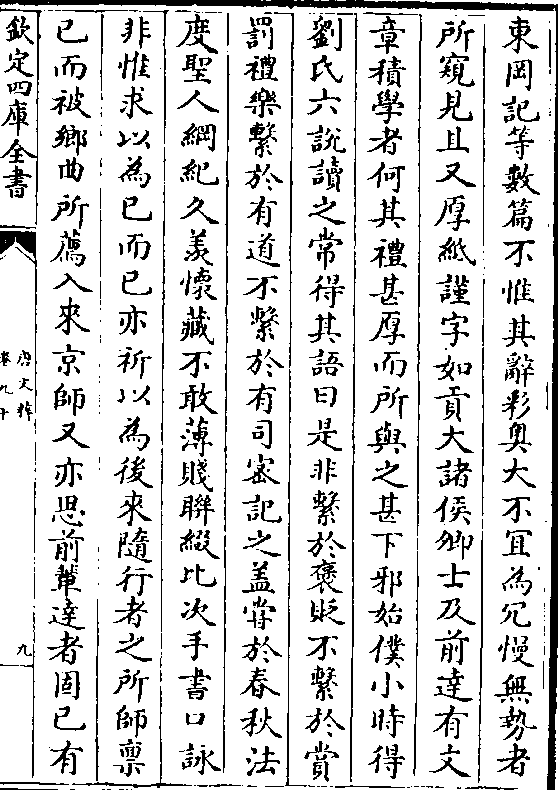 東岡記等數篇不惟其辭彩奧大不宜為冗慢無勢者
所窺見且又厚紙謹字如貢大諸侯卿士及前達有文
章積學者何其禮甚厚而所與之甚下邪始僕小時得
劉氏六說讀之常得其語曰是非繫於褒貶不繫於賞
罰禮樂繫於有道不繫於有司密記之蓋嘗於春秋法
度聖人綱紀久羨懷藏不敢薄賤聯綴比次手書口詠
非惟求以為已而已亦祈以為後來隨行者之所師禀
已而被鄉曲所薦入來京師又亦思前輩達者固已有
欽定四庫全書
唐文粹
卷九十
九